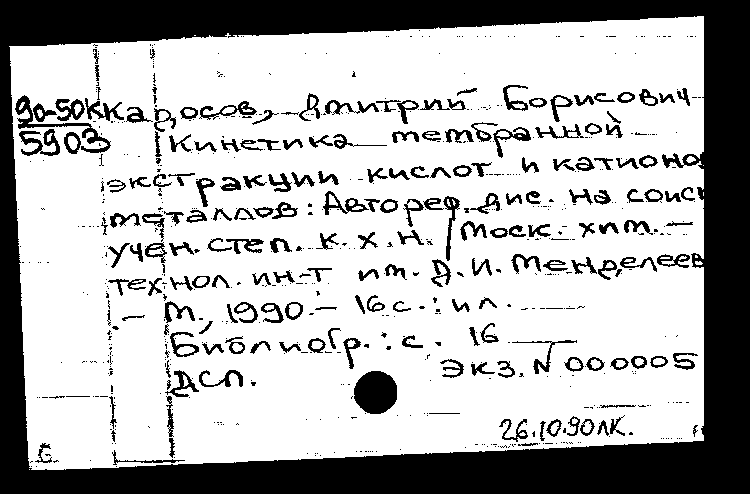 90-50К Кадосов, Дмитрий Борисович
5903 Кинетика мембранной
экстракции кислот и катионов
металлов: Автореф. дис. на соиск
учен. степ. к. х. н. / Моск. хим. –
технол. ин-т им. Д. И. Менделеев
. – М., 1990. – 16 с. : ил.
Библиогр. : с. 16
ДСП. Экз. N 000005
26.10.90 ЛК.